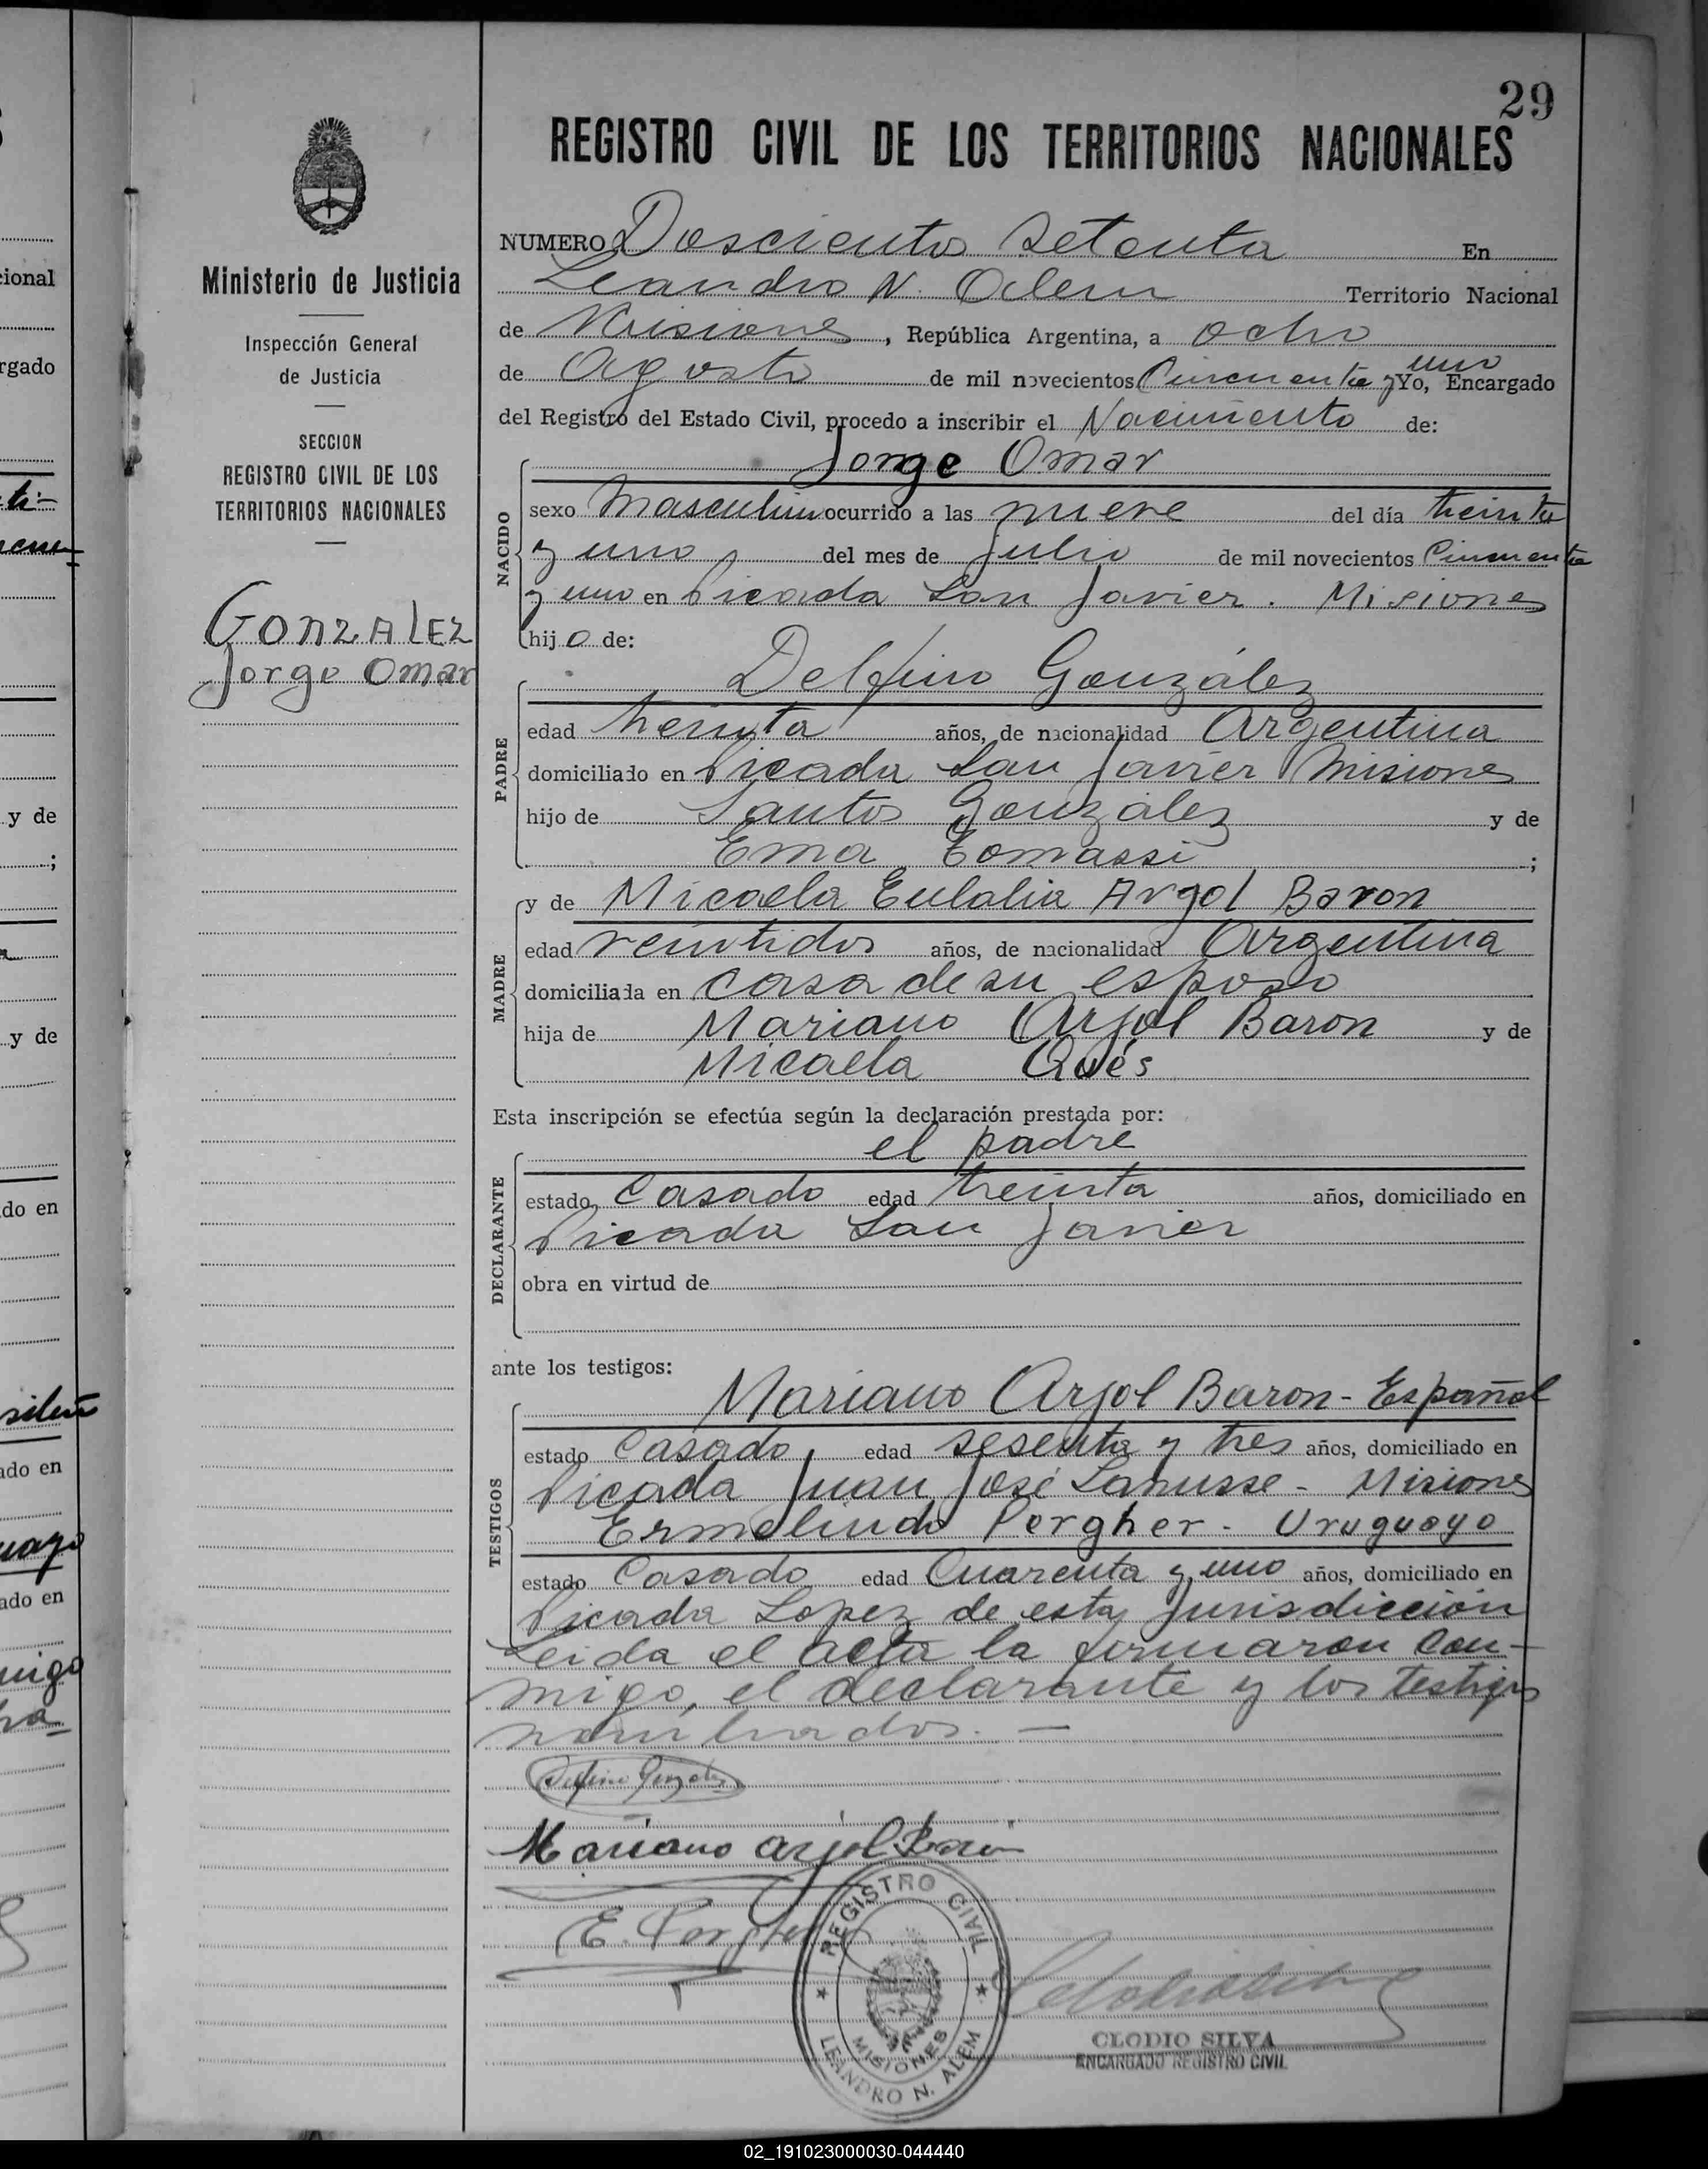 29
REGISTRO CIVIL DE LOS TERRITORIOS NACIONALES
Ministerio de Justicia
Inspección General
de Justicia
SECCION
REGISTRO CIVIL DE LOS
TERRITORIOS NACIONALES
GONZALEZ
Jorge Omar
NUMERO Dosciento Setenta En
Leandro N. Alem Territorio Nacional
de Misiones, República Argentina, a ocho
de Agosto de mil novecientos Cincuenta y uno Yo, Encargado
del Registro del Estado Civil, procedo a inscribir el Nacimiento de:
Jorge Omar
NACIDO
sexo Masculino ocurrido a las nueve del día treinta
y uno, del mes de Julio de mil novecientos Cincuenta
y uno en Picada San Javier. Misiones
hijo de:
Delfino González
PADRE
edad treinta años, de nacionalidad Argentina
domiciliado en Picada San Javier Misiones
hijo de Santos González y de
Ema Tomassi ;
MADRE
y de Micaela Eulalia Argol Baron
edad veintidos años, de nacionalidad Argentina
domiciliada en casa de su esposo
hija de Mariano Arjol Baron y de
Micaela Qués
Esta inscripción se efectúa según la declaración prestada por:
el padre
DECLARANTE
estado Casado edad treinta años, domiciliado en
Picada San Javier
obra en virtud de
ante los testigos:
TESTIGOS
Mariano Arjol Baron - Español
estado Casado, edad sesenta y tres años, domiciliado en
Picada Juan José Lanusse - Misiones
Ermelindo Pergher - Uruguayo
estado Casado edad Cuarenta y uno años, domiciliado en
Picada Lopez de esta Jurisdicción
Leida el acta la firmaron con-
migo, el declarante y los testigos
nombrados. —
Delfino Gonzalez
Mariano Arjol Baron
E. Pergher
REGISTRO CIVIL
MISIONES
LEANDRO N. ALEM
CLODIO SILVA
ENCARGADO REGISTRO CIVIL
cional
rgado
y de
;
y de
do en
ado en
ado en
02_191023000030-044440